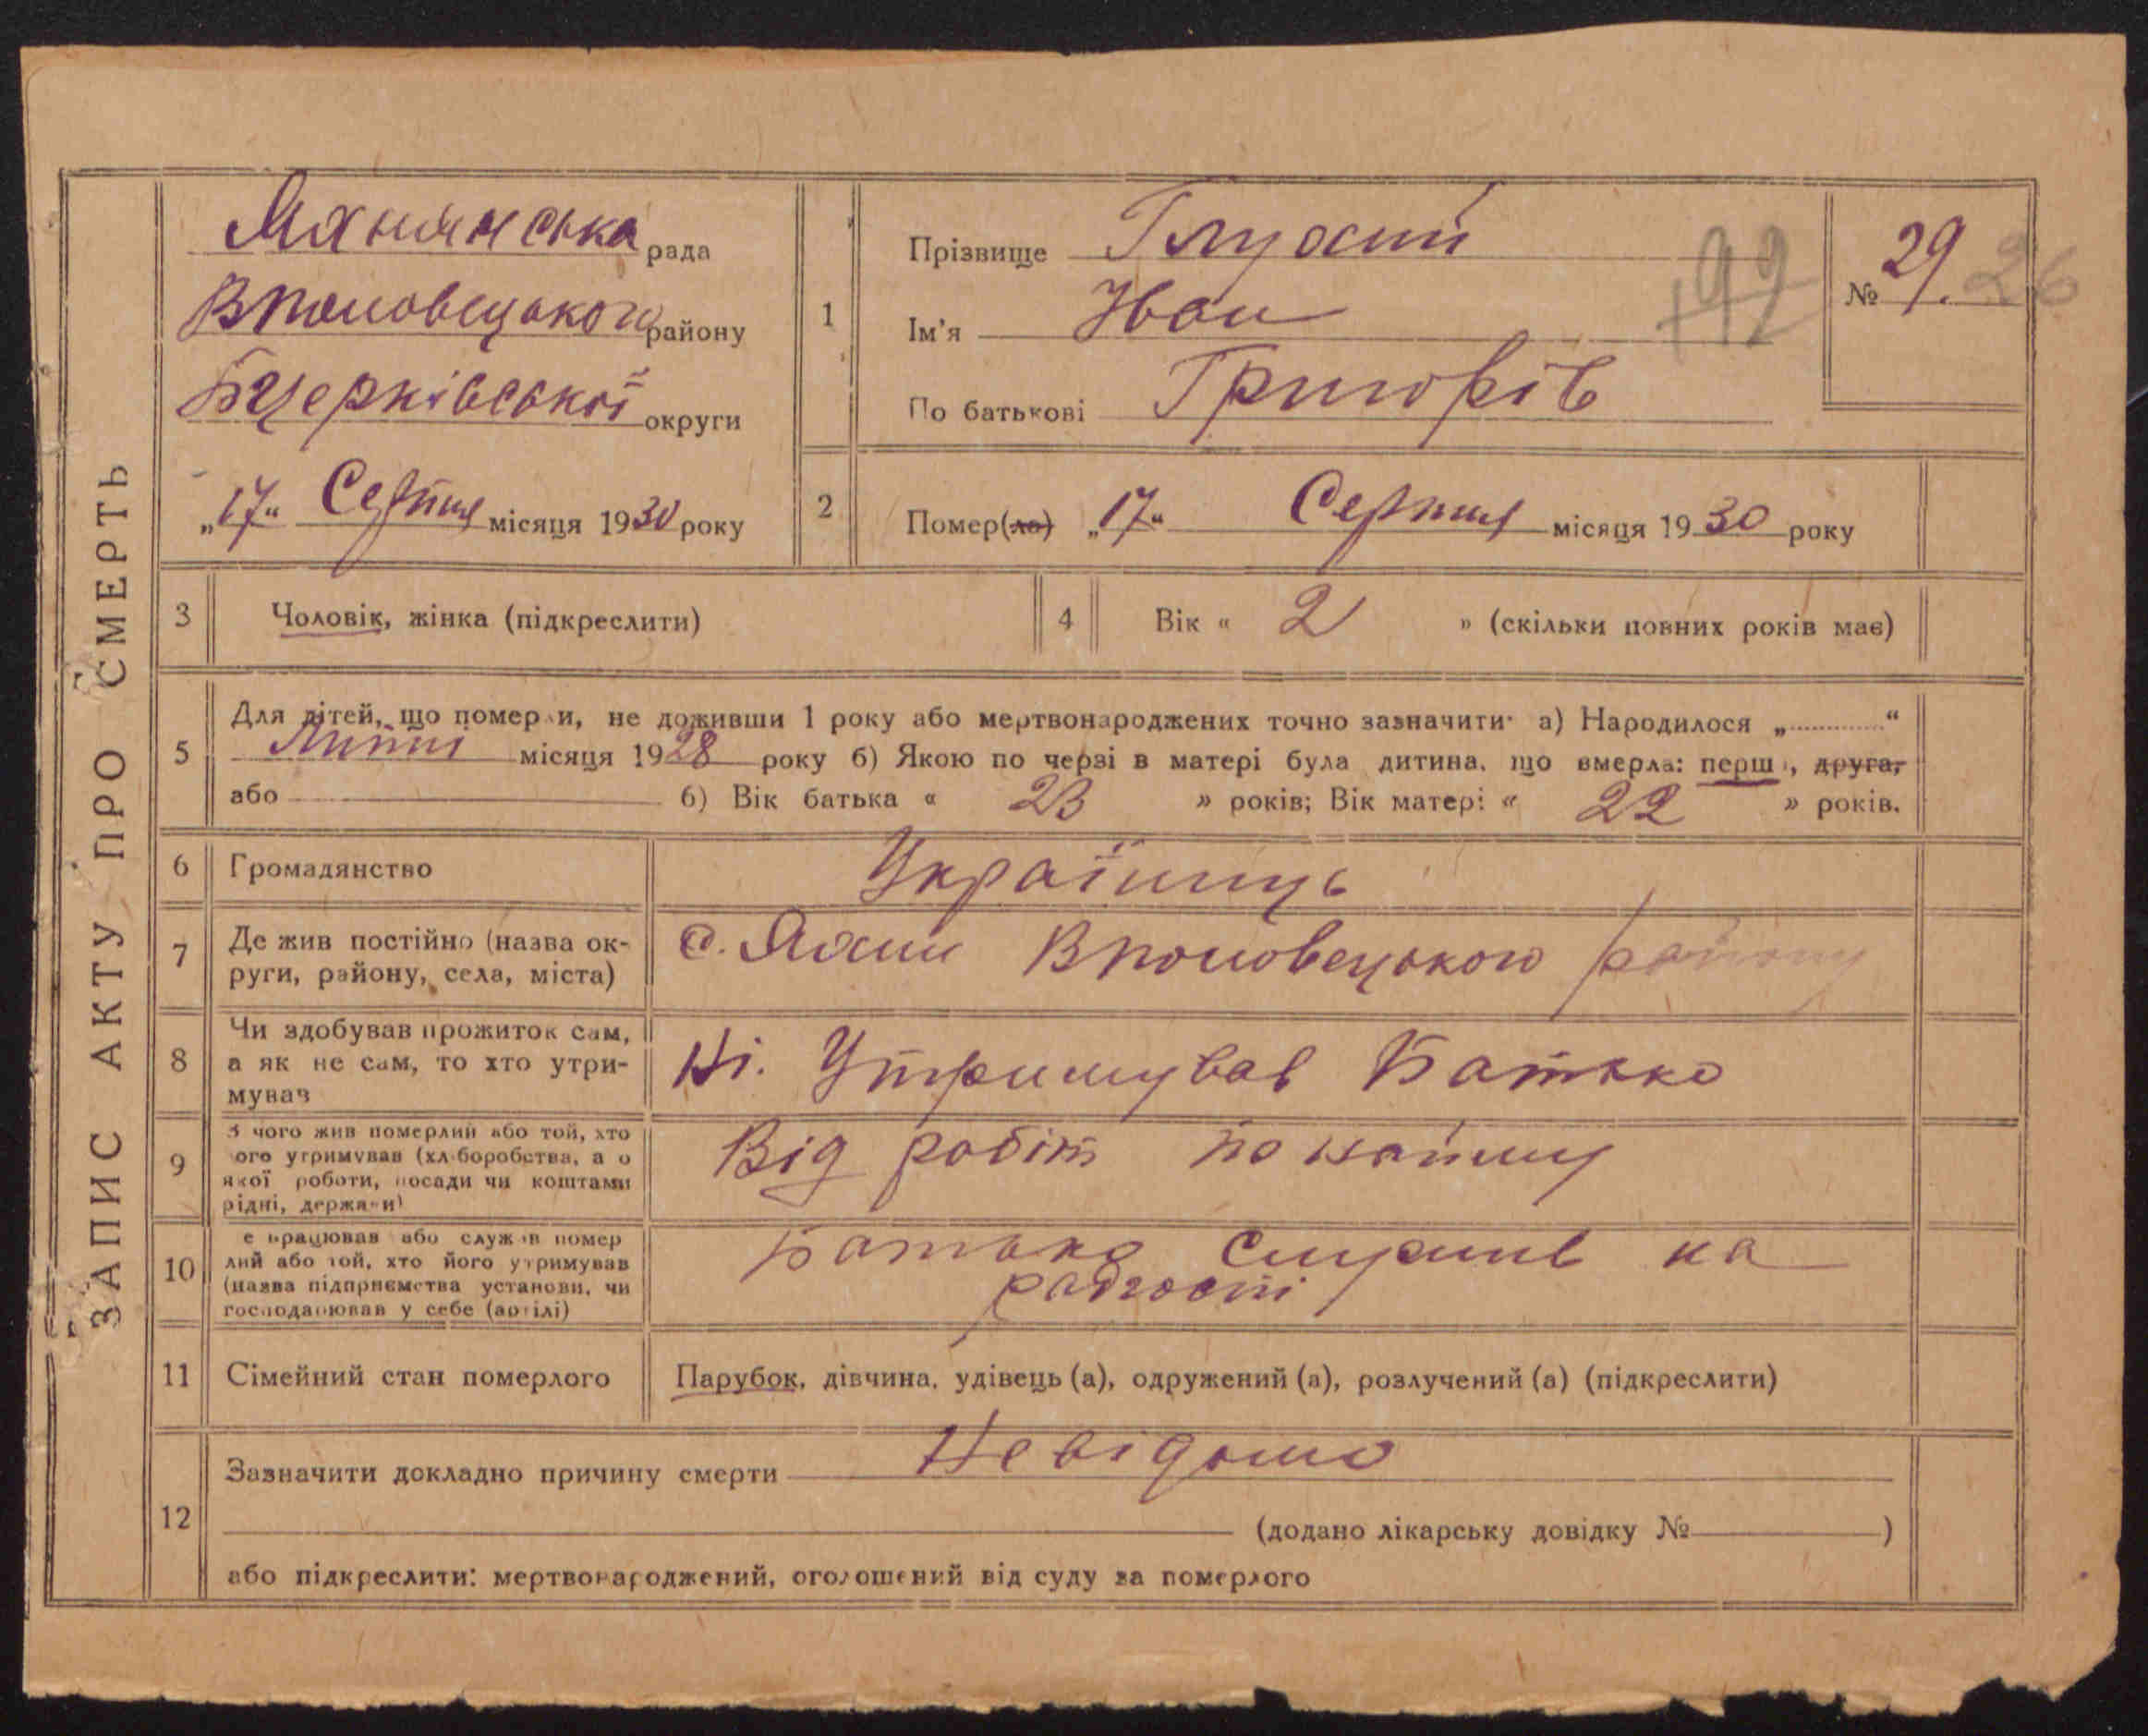 ЗАПИС АКТУ ПРО СМЕРТЬ
Яхнянська рада
Вполовецького району
Бцерківської округи
„17“ Серпня місяця 1930 року
1
Прізвище Глухий
Ім'я Иван
По батькові Григорів
192
№ 29. 26
2
Помер(ла) „17“ Серпня місяця 1930 року
3 Чоловік, жінка (підкреслити)
4 Вік « 2 » (скільки повних років має)
5 Для дітей, що померли, не доживши 1 року або мертвонароджених точно зазначити: а) Народилося „ “
Липні місяця 1928 року б) Якою по черзі в матері була дитина, що вмерла: перша, друга,
або 6) Вік батька « 23 » років; Вік матері « 22 » років.
6 Громадянство Українець
7 Де жив постійно (назва ок-
руги, району, села, міста)
с. Яхни Вполовецького району
8 Чи здобував прожиток сам,
а як не сам, то хто утри-
мував
Ні. Утримував Батько
9 З чого жив померлий або той, хто
ого утримував (хліборобства, а о
якої роботи, посади чи коштами
рідні, держави)
Від робіт по найму
10 е працював або служив помер
лий або той, хто його утримував
(назва підприємства установи, чи
господарював у себе (артілі)
Батько Служив на
радгоспі
11 Сімейний стан померлого Парубок, дівчина, удівець (а), одружений (а), розлучений (а) (підкреслити)
12 Зазначити докладно причину смерти Невідомо
(додано лікарську довідку № )
або підкреслити: мертвонароджений, оголошений від суду за померлого